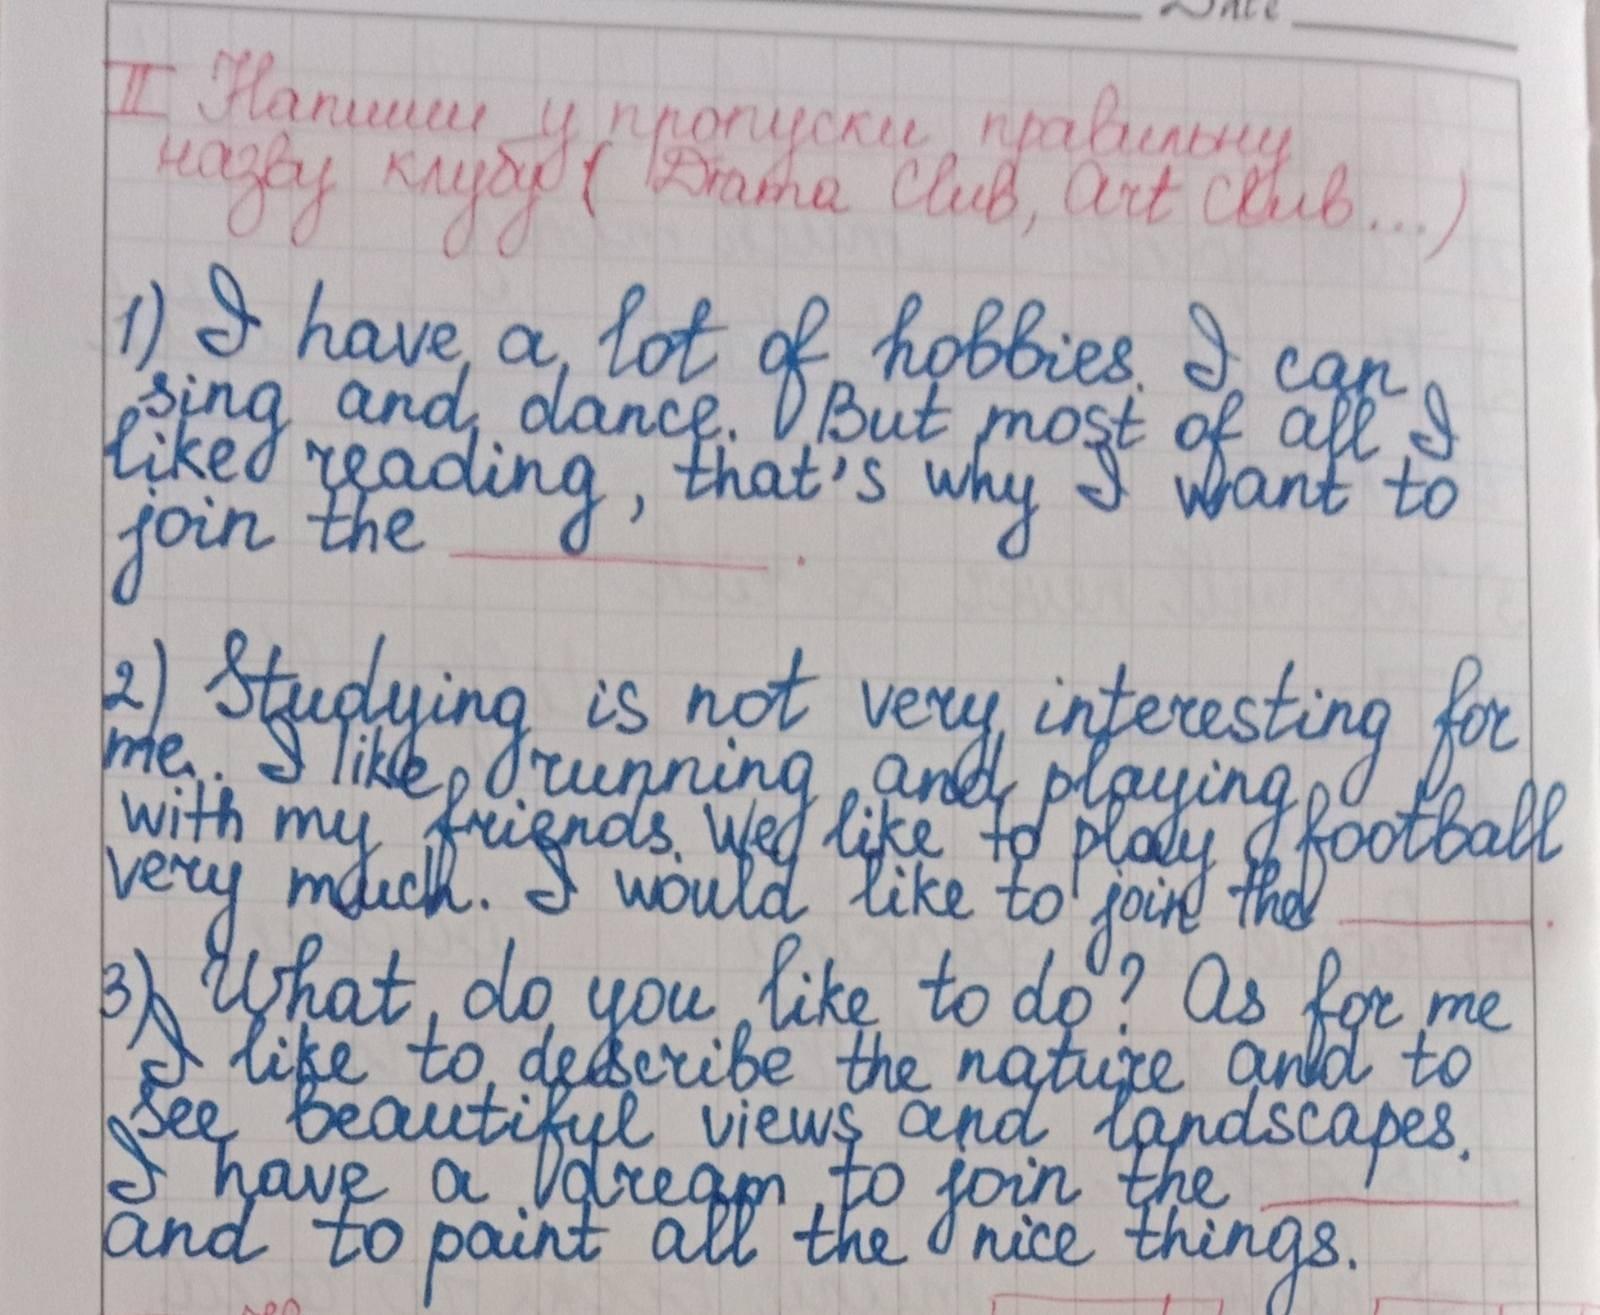 Date
II Напиши у пропуски правильну
назву клубу ( Drama Club, Art Club...)
1) I have a lot of hobbies. I can
sing and dance. But most of all I
like reading, that's why I want to
join the ________.
2) Studying is not very interesting for
me. I like running and playing
with my friends. We like to play football
very much. I would like to join the ________.
3) What do you like to do? As for me
I like to describe the nature and to
see beautiful views and landscapes.
I have a dream to join the ________
and to paint all the nice things.